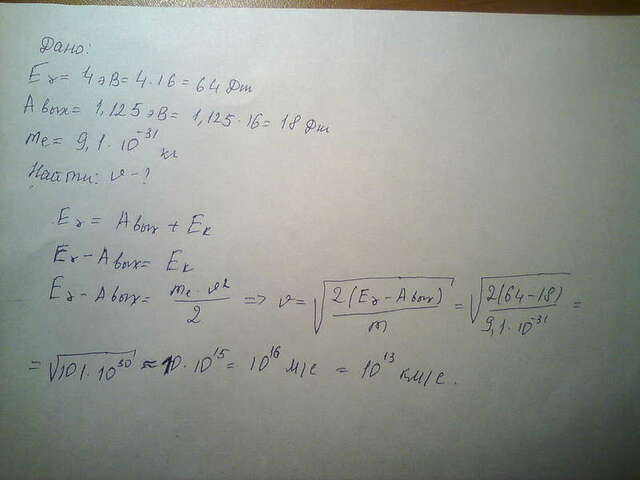 Дано:
Eγ = 4 эВ = 4·16 = 64 Дж
Aвых = 1,125 эВ = 1,125·16 = 18 Дж
me = 9,1·10^-31 кг
Найти: v - ?
Eγ = Aвых + Eк
Eγ - Aвых = Eк
Eγ - Aвых = me·v²/2 => v = √(2(Eγ - Aвых)/m) = √(2(64-18)/9,1·10^-31) =
= √(101·10^30) ≈ 10·10^15 = 10^16 м/с = 10^13 км/с.